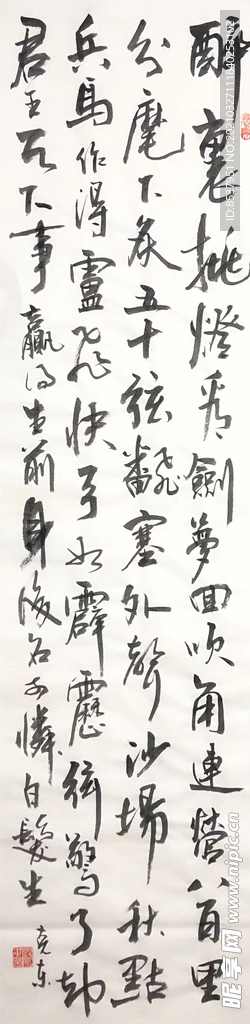 醉裏挑燈看劍夢回吹角連營八百里
分麾下炙五十弦飜塞外聲沙場秋點
兵馬作得盧飛快弓如霹靂弦驚了却
君王天下事贏得生前身後名可憐白髮生
克東
ID:8537351 NO:20210327111840253102
昵享网 www.nipic.cn